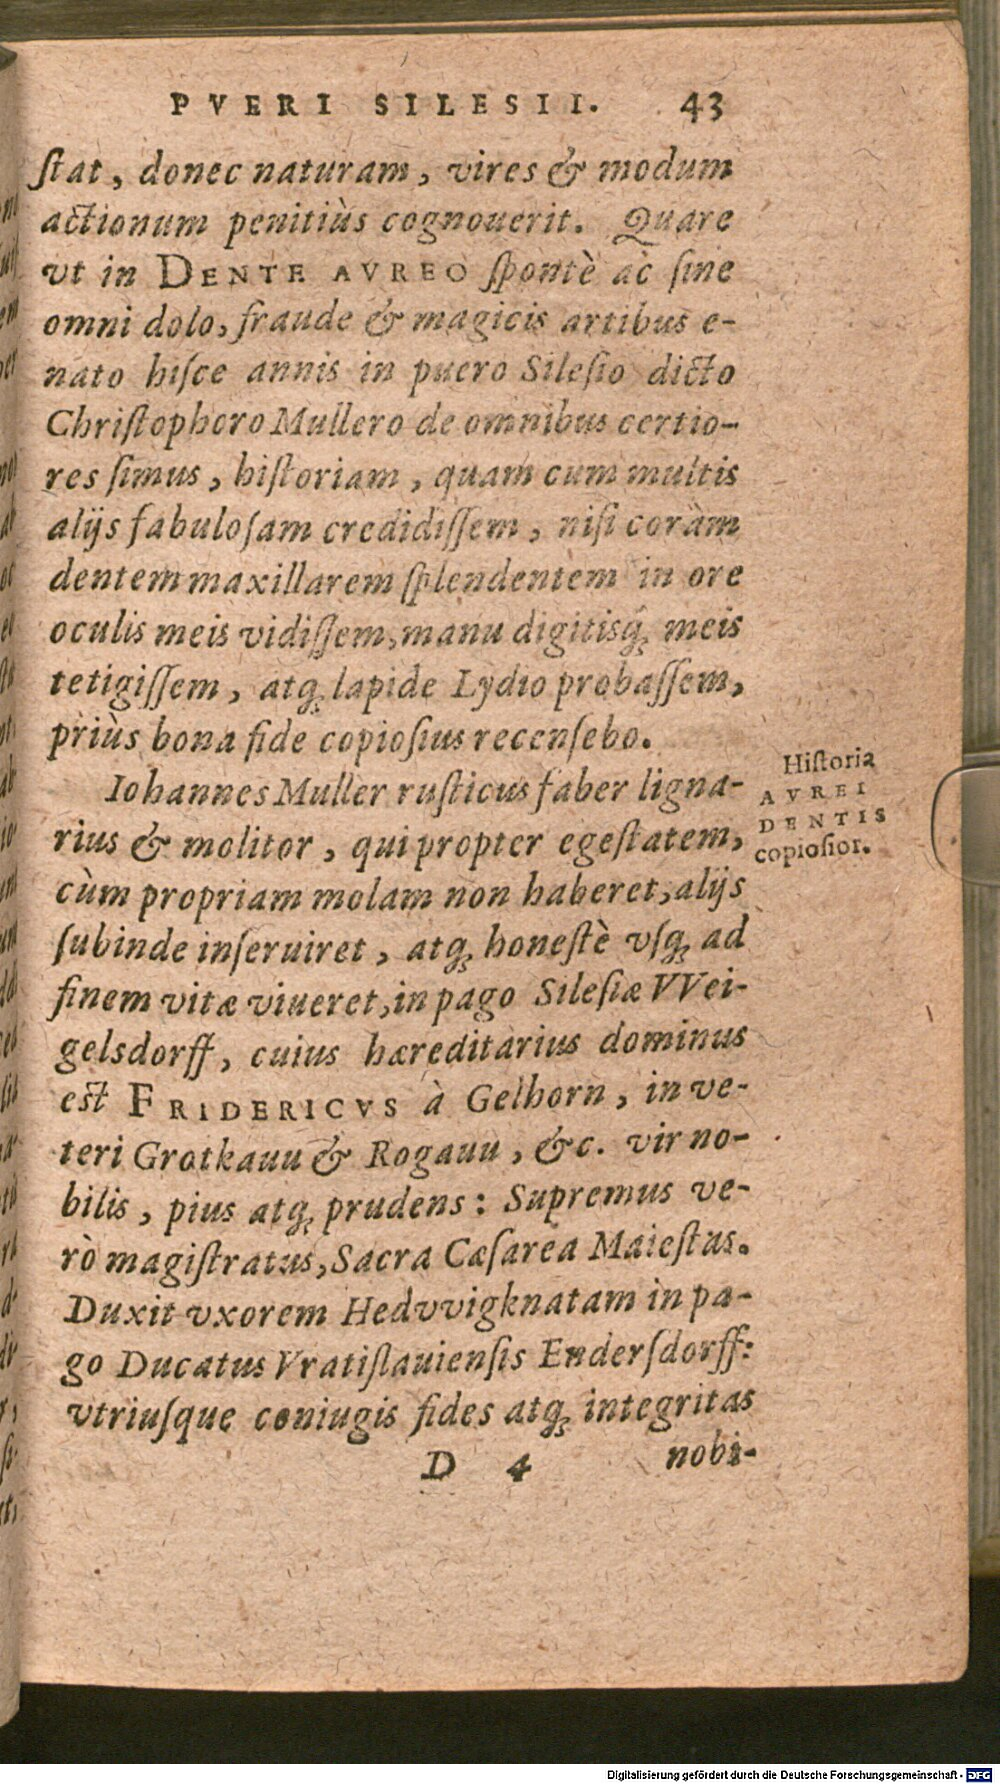 PVERI SILESII. 43
ſtat, donec naturam, vires & modum
actionum penitiùs cognouerit. Quare
vt in DENTE AVREO ſpontè ac ſine
omni dolo, fraude & magicis artibus e-
nato hiſce annis in puero Sileſio dicto
Chriſtophoro Mullero de omnibus certio-
res ſimus, hiſtoriam, quam cum multis
alijs fabuloſam credidiſſem, niſi coràm
dentem maxillarem ſplendentem in ore
oculis meis vidiſſem, manu digitisq́; meis
tetigiſſem, atq; lapide Lydio probaſſem,
priùs bona fide copioſius recenſebo.
Iohannes Muller ruſticus faber ligna-
rius & molitor, qui propter egeſtatem,
cùm propriam molam non haberet, alijs
ſubinde inſeruiret, atq; honeſtè vſq; ad
finem vitæ viueret, in pago Sileſiæ VVei-
gelsdorff, cuius hæreditarius dominus
eſt FRIDERICVS à Gelhorn, in ve-
teri Grotkauu & Rogauu, &c. vir no-
bilis, pius atq; prudens: Supremus ve-
rò magiſtratus, Sacra Cæſarea Maieſtas.
Duxit vxorem Hedvvigknatam in pa-
go Ducatus Vratiſlauienſis Enderſdorff:
vtriuſque coniugis fides atq; integritas
D 4 nobi-
Hiſtoria
AVREI
DENTIS
copioſior.
Digitalisierung gefördert durch die Deutsche Forschungsgemeinschaft - DFG